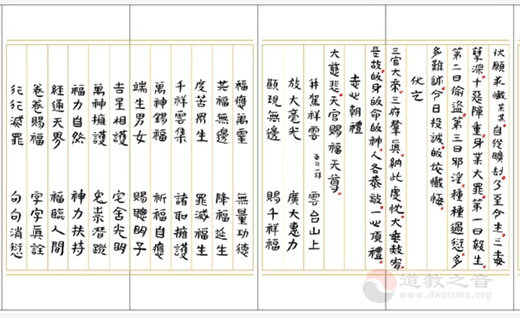 伏願求懺某自從曠劫了至今生三毒
孽深十惡障重身業大罪第一曰殺生
第二曰偷盜第三曰邪淫種種過愆多
多難訴今日投誠皈依懺悔
伏乞
三官大帝三府羣真納此虔忱大垂赦宥
是故皈身皈命皈神人各恭敬一心頂禮
志心朝禮
大慈悲天官賜福天尊
駕祥雲 雲台山上
放大毫光 廣大惠力
顯現無邊 賜千祥福
福應萬靈 無量功德
其福無邊 降福延生
度苦男生 罪滅福生
千祥雲集 諸擁護
萬神錫福 祈福自應
端生男女 賜聰明子
吉星相護 宅舍光明
萬神擁護 鬼祟潛蹤
福力自然 神力扶持
經通天界 福臨人間
卷卷賜福 字字真詮
行行滅罪 句句消愆
道教之音
www.daoisms.org